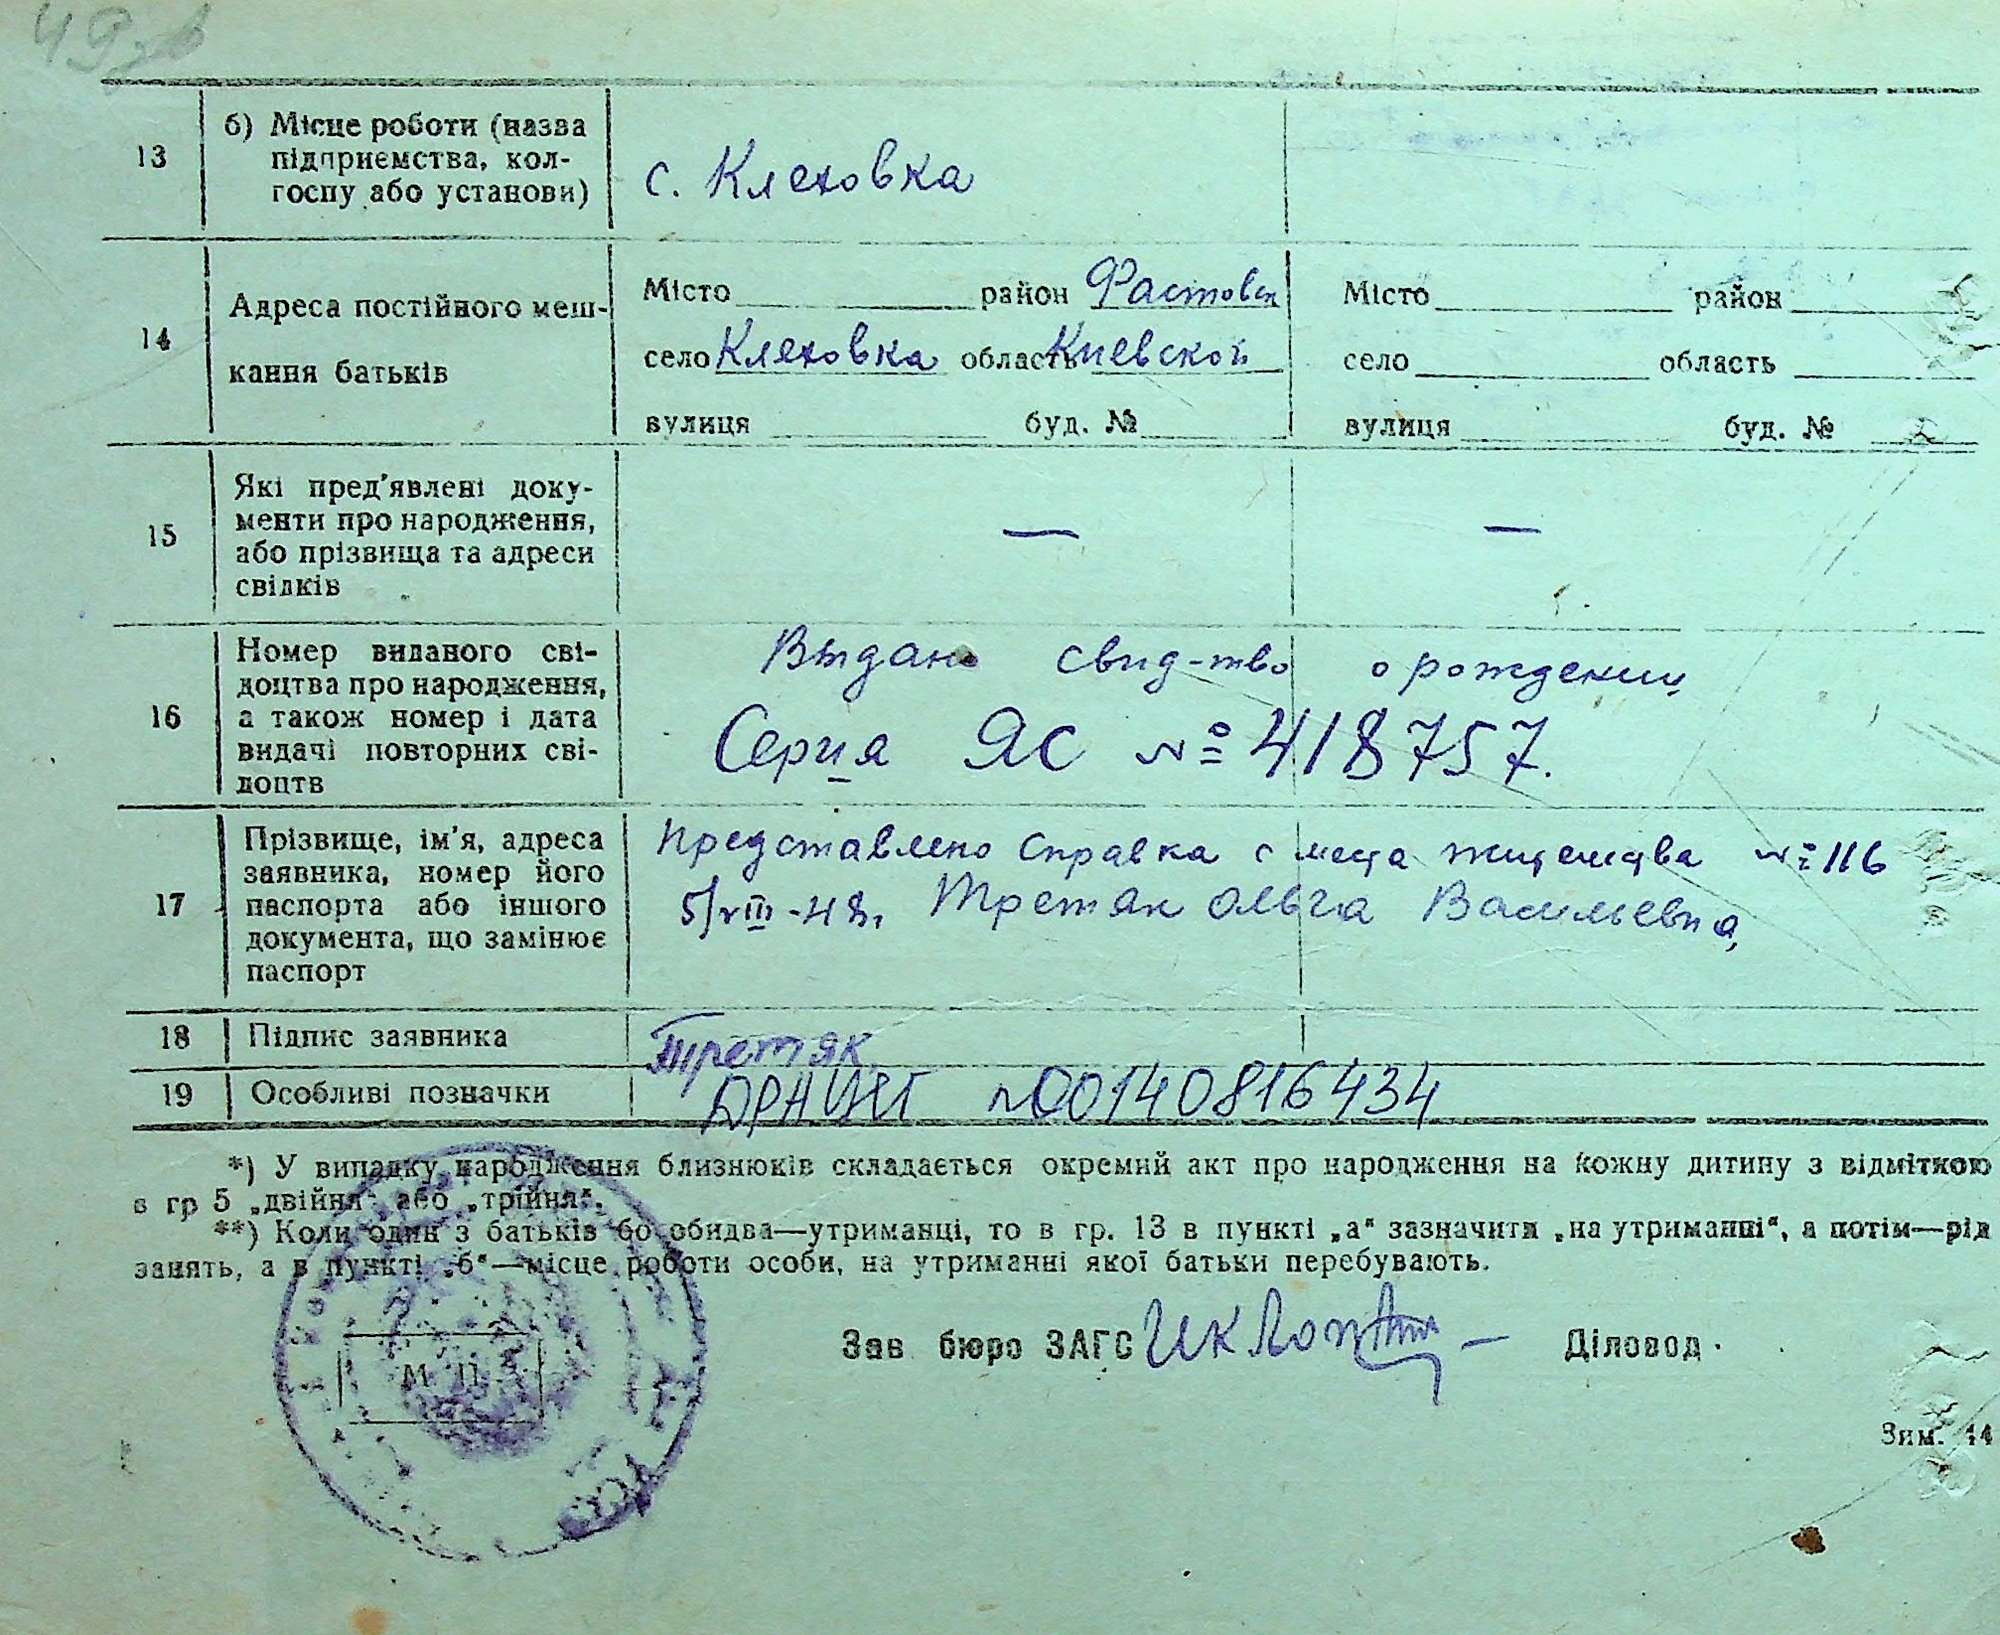 13
б) Місце роботи (назва
підприємства, кол-
госпу або установи)
с. Клеховка
14
Адреса постійного меш-
кання батьків
Місто район Фастовск
село Кляховка область Киевской
вулиця буд. №
Місто район
село область
вулиця буд. №
15
Які пред'явлені доку-
менти про народження,
або прізвища та адреси
свідків
—
—
16
Номер виданого сві-
доцтва про народження,
а також номер і дата
видачі повторних сві-
доцтв
Выдано свид-тво о рождении
Серия ЯС № 418757.
17
Прізвище, ім'я, адреса
заявника, номер його
паспорта або іншого
документа, що замінює
паспорт
Представлено справка с места № 116
5/VIII-48. Третяк Ольга Васильевна,
18
Підпис заявника
Третяк
19
Особливі позначки
ДРАЦСГ №00140816434
*) У випадку народження близнюків складається окремий акт про народження на кожну дитину з відміткою
в гр 5 „двійня“, або „трійня“.
**) Коли один з батьків бо обидва—утриманці, то в гр. 13 в пункті „а“ зазначити „на утриманні“, а потім—рід
занять, а в пункті „б“—місце роботи особи, на утриманні якої батьки перебувають.
Зав бюро ЗАГС
Діловод.
М П
Зам. 44